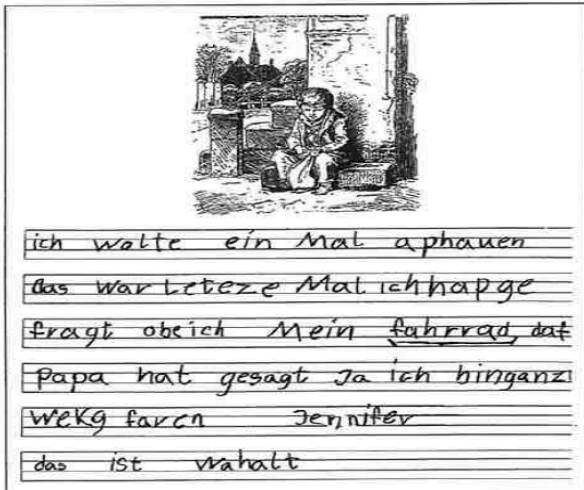 ich wolte ein Mal aphauen
das war Leteze Mal ichhapge
fragt obeich Mein fahrrad daf
Papa hat gesagt Ja ich binganz
wekg faren Jennifer
das ist wahalt